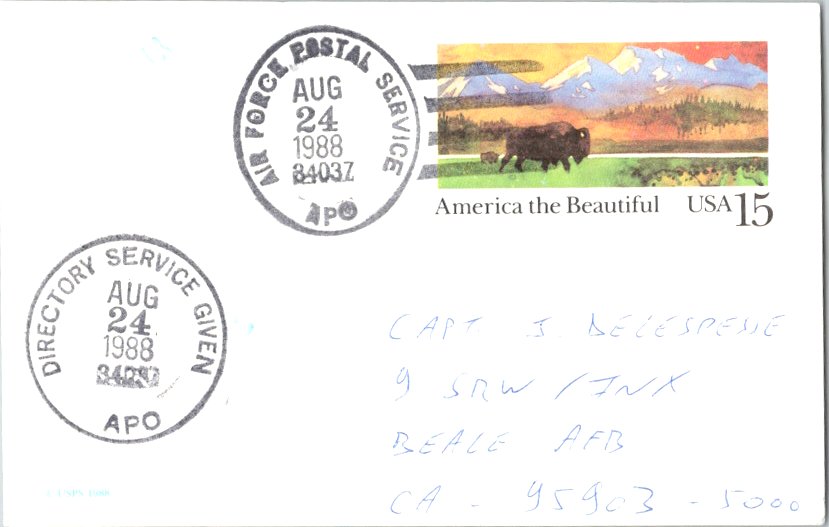 AIR FORCE POSTAL SERVICE
AUG
24
1988
3403Z
APO
America the Beautiful USA 15
DIRECTORY SERVICE GIVEN
AUG
24
1988
APO
CAPT J. DELESPESSE
9 SRW / INX
BEALE AFB
CA - 95903 - 5000
© USPS 1988